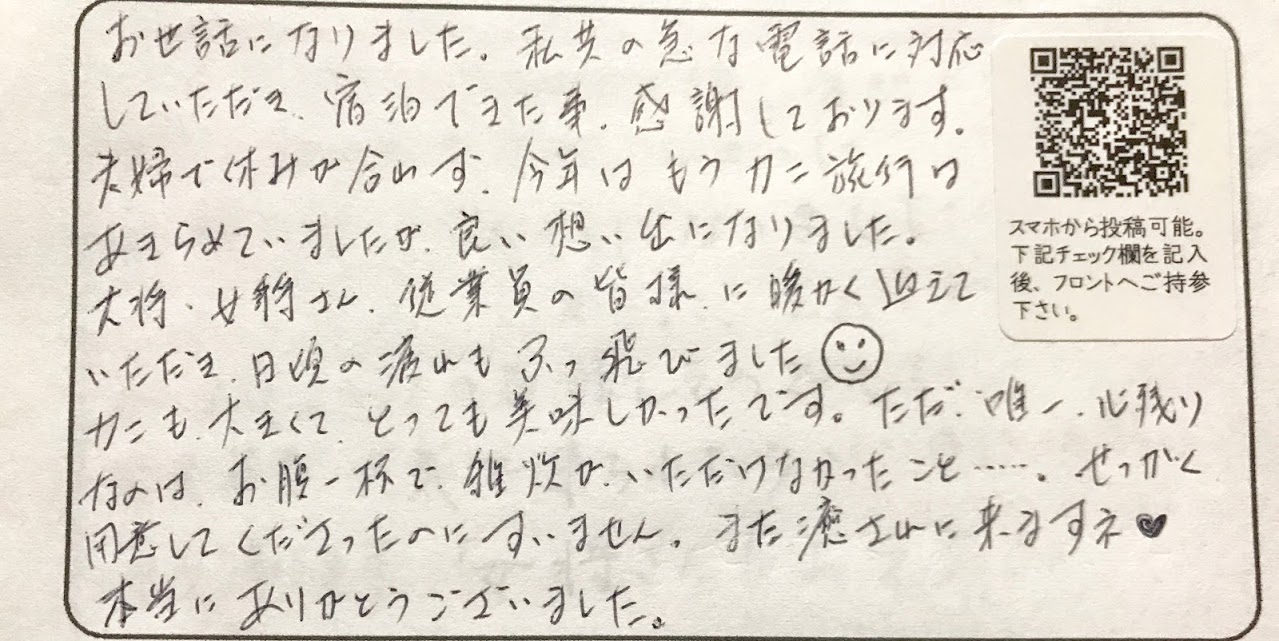 お世話になりました。私共の急な電話に対応
していただき、宿泊できた事、感謝しております。
夫婦で休みが合わず、今年はもうカニ旅行は
あきらめていましたが、良い想い出になりました。
大将、女将さん、従業員の皆様、に暖かく迎えて
いただき、日頃の疲れもふっ飛びました
カニも、大きくて、とっても美味しかったです。ただ、唯一、心残り
なのは、お腹一杯で、雑炊が、いただけなかったこと……。せっかく
用意してくださったのにすいません。また癒されに来ますネ♥
本当にありがとうございました。
スマホから投稿可能。
下記チェック欄を記入
後、フロントへご持参
下さい。